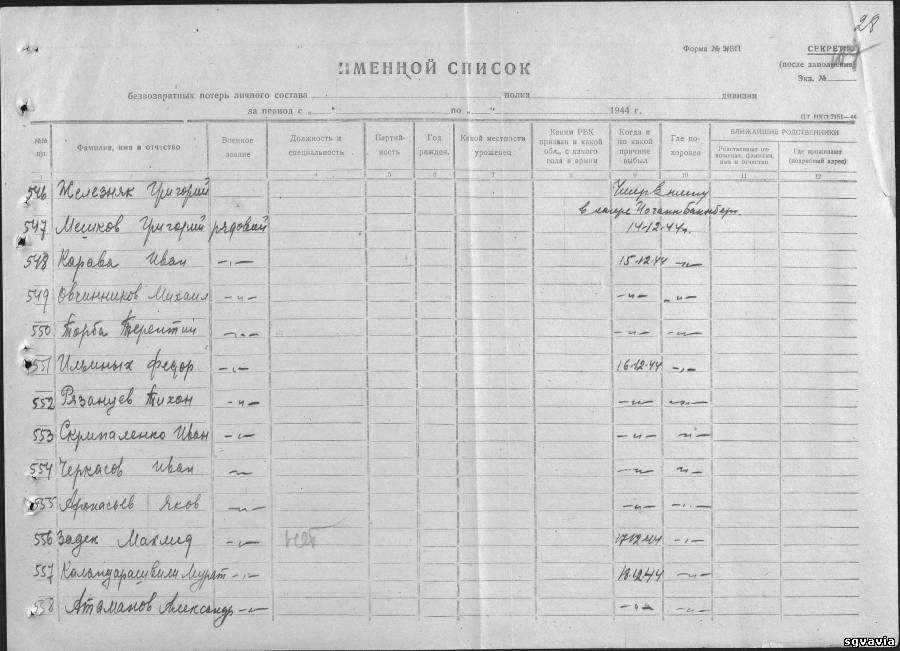 28
Форма № 2/БП
СЕКРЕТНО
(после заполнения)
Экз. №
ИМЕННОЙ СПИСОК
безвозвратных потерь личного состава полка дивизии
за период с „ " по „ " 1944 г.
№№ п/п.
Фамилия, имя и отчество
Военное звание
Должность и специальность
Партийность
Год рожден.
Какой местности уроженец
Каким РВК призван и какой обл., с какого года в армии
Когда и по какой причине выбыл
Где похоронен
БЛИЖАЙШИЕ РОДСТВЕННИКИ
Родственные отношения, фамилия, имя и отчество
Где проживают (подробный адрес)
4 5 6 7 8 9 10 11 12
546 Железняк Григорий Умер в плену
в лагере
547 Мешков Григорий рядовой 14-12-44г.
548 Карава Иван -"- 15-12-44 -"-
549 Овчинников Михаил -"- -"- -"-
550 Торба Терентий -"- -"- -"-
551 Ильиных Федор -"- 16-12-44 -"-
552 Рязанцев Тихон -"- -"- -"-
553 Скрипаленко Иван -"- -"- -"-
554 Черкасов Иван -"- -"- -"-
555 Афонасьев Яков -"- -"- -"-
556 Задек Махмед -"- нет 17-12-44 -"-
557 Каландарашвили Мурат -"- 18-12-44 -"-
558 Атаманов Александр -"- -"- -"-
sgvavia